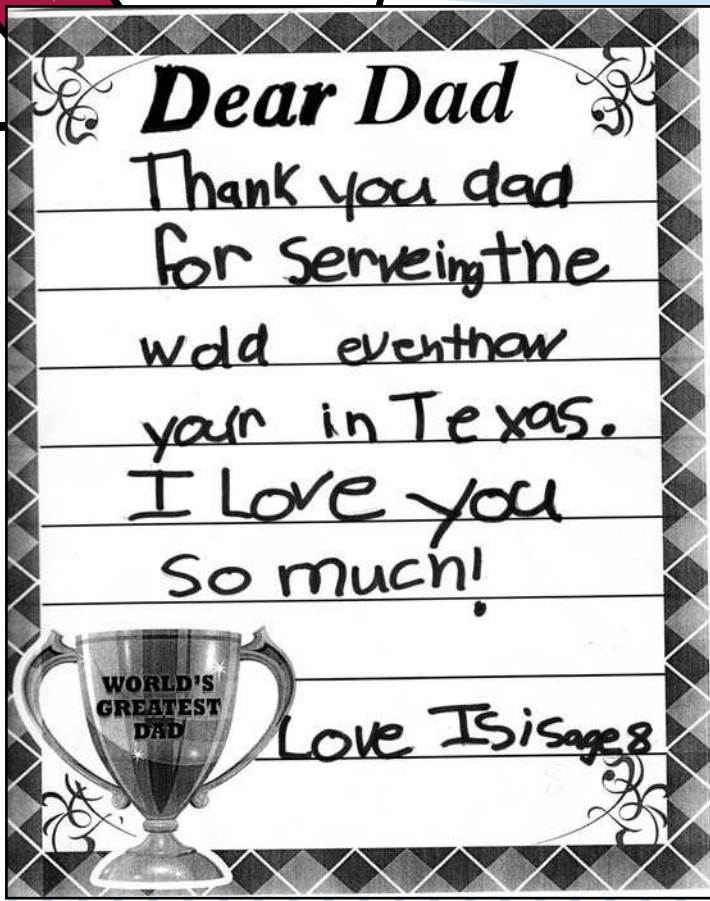 Dear Dad
Thank you dad
for serveing the
wold eventhow
your in Texas.
I Love you
so much!
WORLD'S
GREATEST
DAD
Love Isis age 8